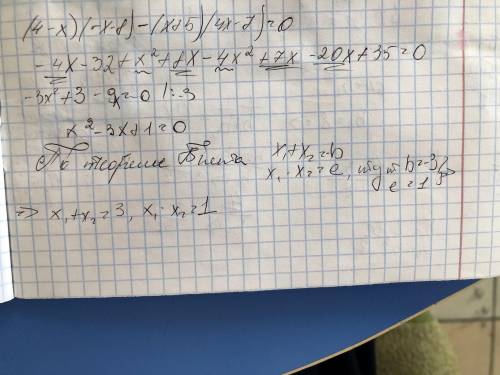 (4-x)(-x-8)-(x+5)(4x-7)=0
-4x-32+x²+8x-4x²+7x-20x+35=0
-3x²+3-9x=0 |:-3
x²-3x+1=0
По теореме Виета x₁+x₂=b
x₁·x₂=c, тут b=3
c=1 =>
=> x₁+x₂=3, x₁·x₂=1